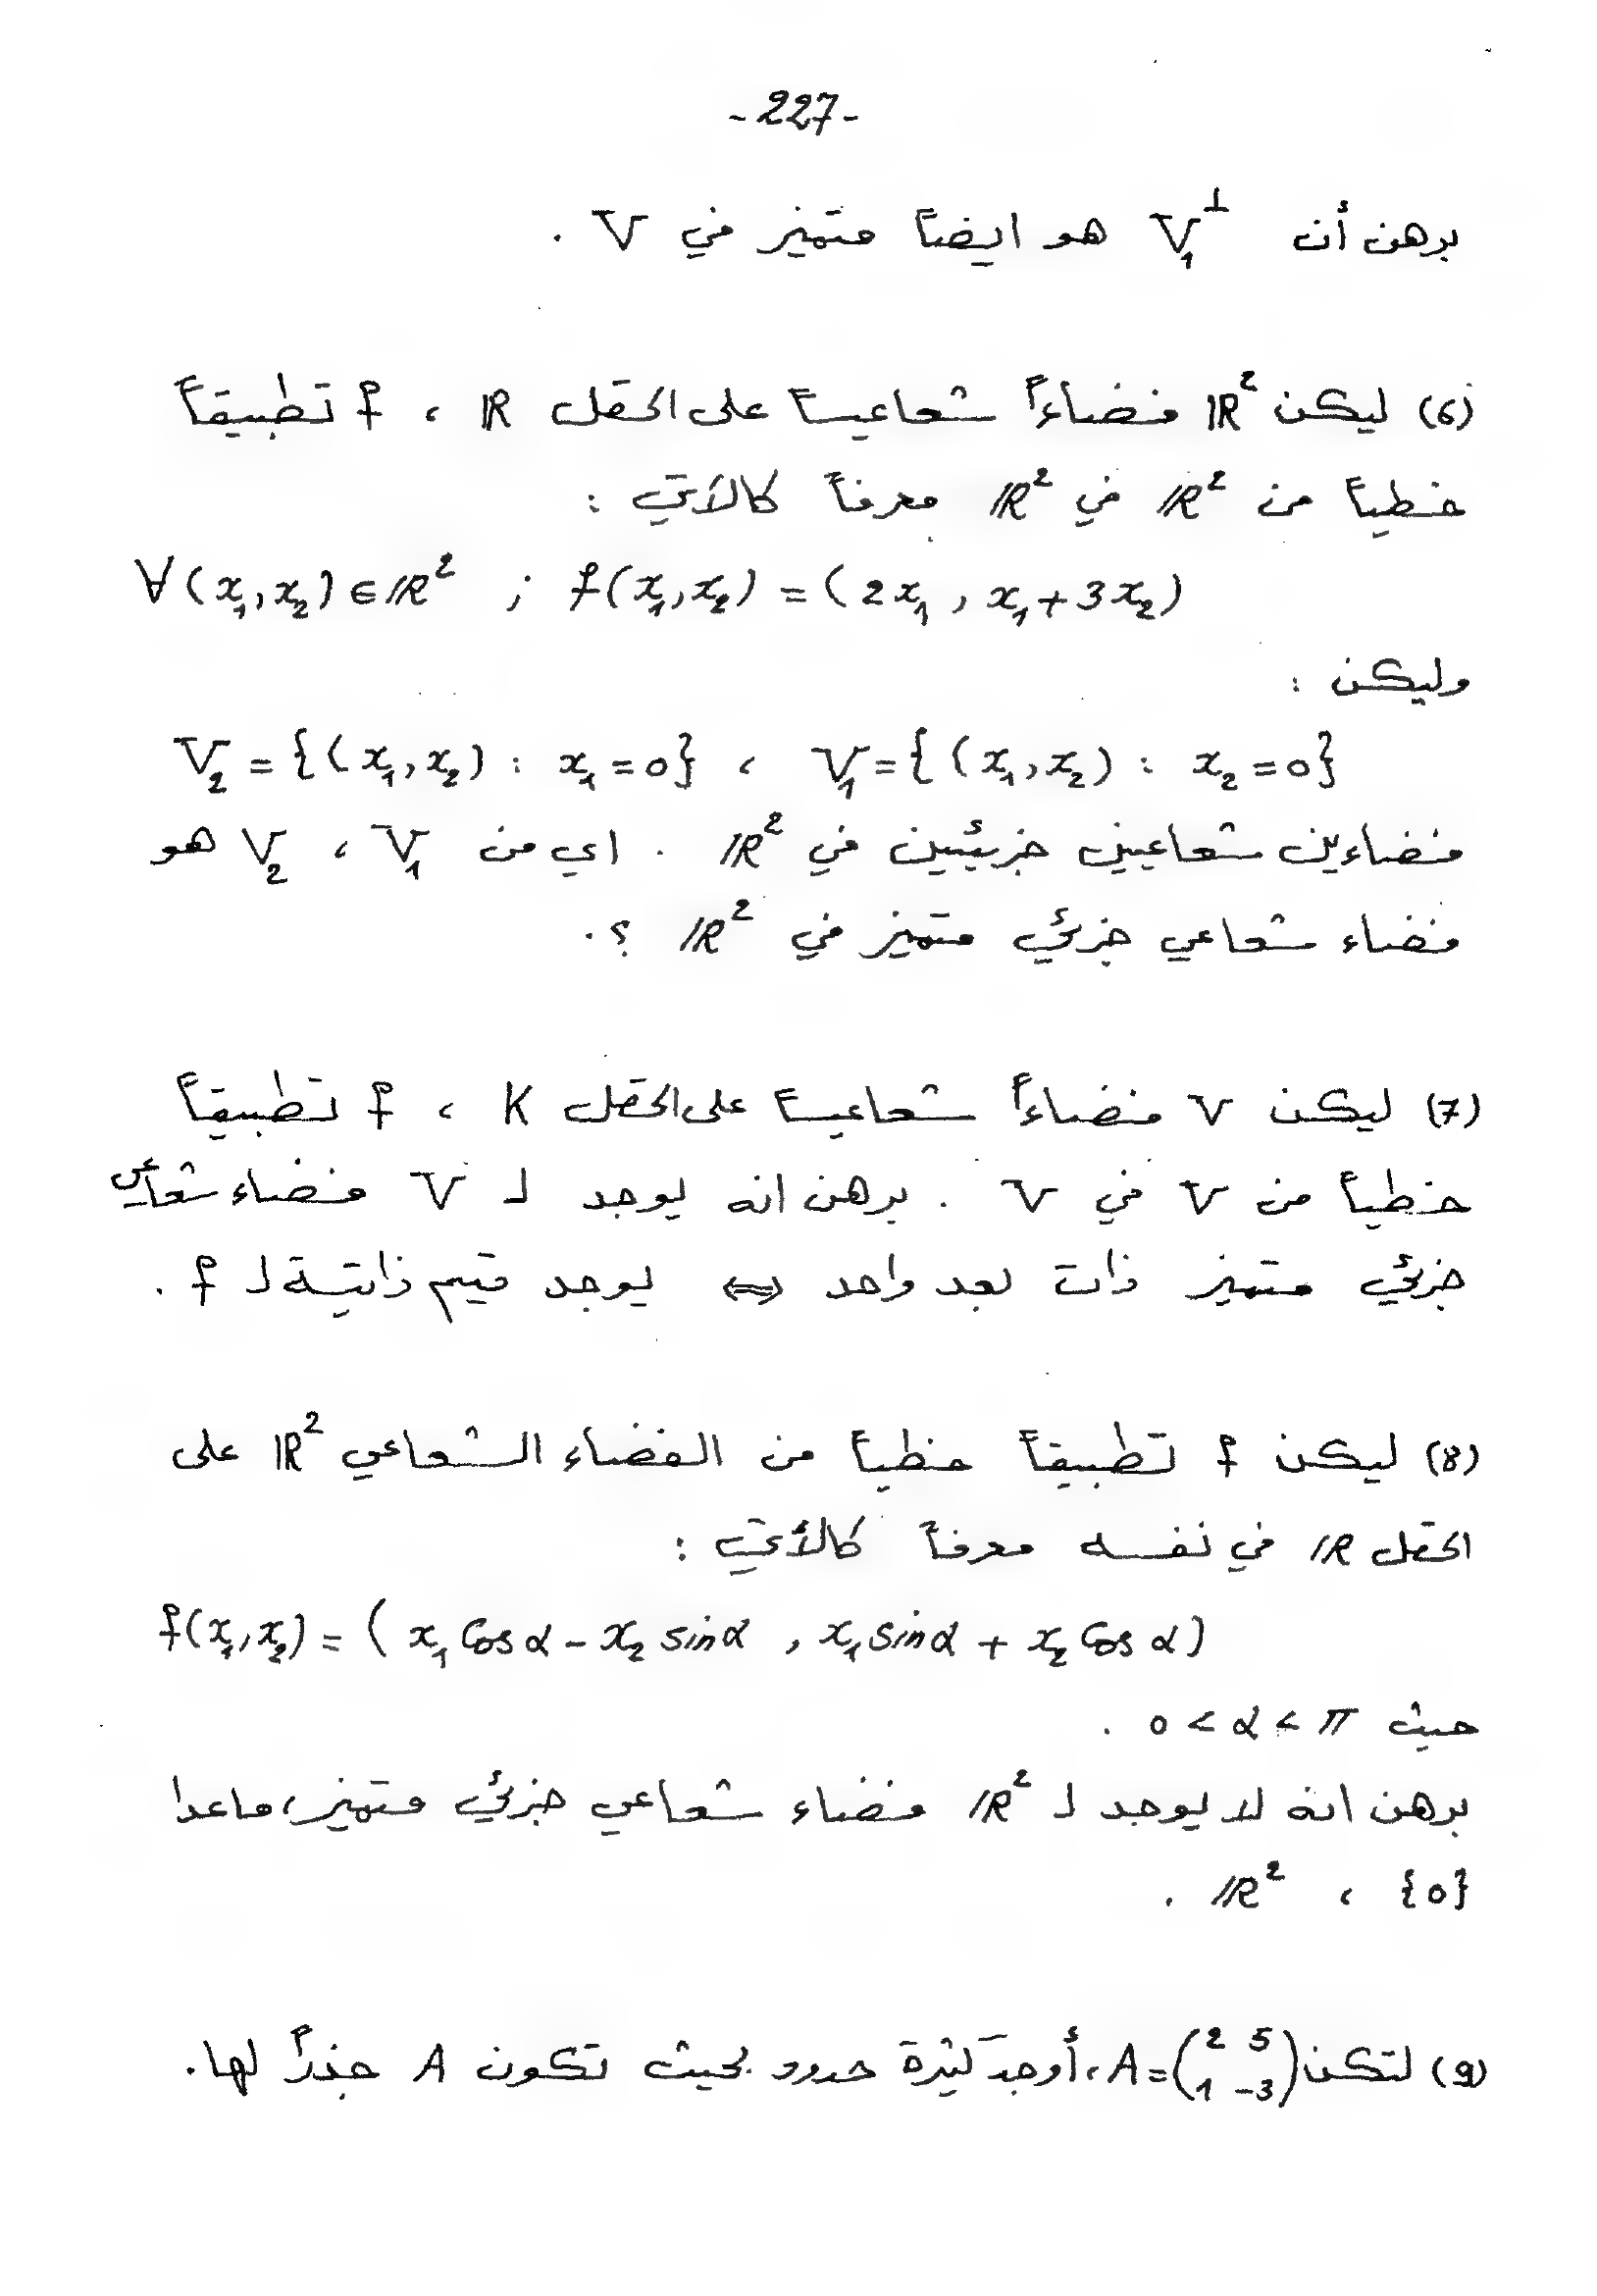 - 227 -
برهن أن V₁^⊥ هو ايضاً متميز في V .
(6) ليكن ℝ² فضاءاً شعاعياً على الحقل ℝ ، f تطبيقاً
خطياً من ℝ² في ℝ² معرفاً كالآتي :
∀(x₁,x₂)∈ℝ² ; f(x₁,x₂) = (2x₁ , x₁+3x₂)
وليكن :
V₂ = {(x₁,x₂) : x₁=0} ، V₁ = {(x₁,x₂) : x₂=0}
فضاءين شعاعيين جزئيين في ℝ² . اي من V₁ ، V₂ هو
فضاء شعاعي جزئي متميز في ℝ² ؟.
(7) ليكن V فضاءاً شعاعياً على الحقل K ، f تطبيقاً
خطياً من V في V . برهن انه يوجد لـ V فضاء شعاعي
جزئي متميز ذات بعد واحد ⟺ يوجد قيم ذاتية لـ f .
(8) ليكن f تطبيقاً خطياً من الفضاء الشعاعي ℝ² على
الحقل ℝ في نفسه معرفاً كالأتي :
f(x₁,x₂) = ( x₁ Cos α − x₂ sin α , x₁ sin α + x₂ Cos α)
حيث 0 < α < π .
برهن انه لا يوجد لـ ℝ² فضاء شعاعي جزئي متميز، ماعدا
{0} ، ℝ² .
(9) لتكن A = (2 5 ; 1 −3) ، أوجد كثيرة حدود بحيث تكون A جذراً لها.